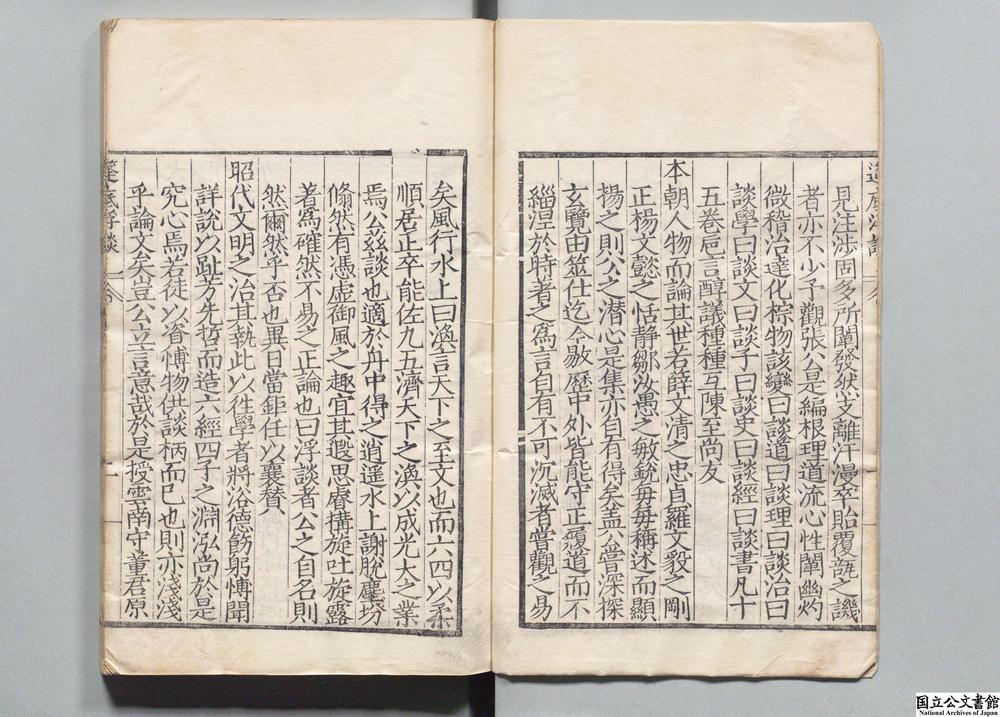 見注涉固多所闡發然支離汗漫卒貽覆瓿之譏
者亦不少予觀張公是編根理道流心性闡幽灼
微稽治達化棕物該變曰談道曰談理曰談治曰
談學曰談文曰談子曰談史曰談經曰談書凡十
五卷巵言醇議種種互陳至尚友
本朝人物而論其世若薛文清之忠貞羅文毅之剛
正楊文懿之恬静鄒汝愚之敏銳毎毎稱述而顯
揚之則公之潛心是集亦自有得矣盖公嘗深探
玄覽由筮仕迄今敭歷中外皆能守正殞道而不
緇涅於時者之爲言自有不可沉滅者嘗觀之易
矣風行水上曰渙言天下之至文也而六四以柔
順居正卒能佐九五濟天下之渙以成光大之業
焉公兹談也適於舟中得之逍遥水上謝脫塵坊
翛然有憑虛御風之趣宜其遐思睿搆旋吐旋露
著爲確然不易之正論也曰浮談者公之自名則
然爾然乎否也異日當鉅任以襄贊
昭代文明之治其執此以徃學者將浴德飭躬愽聞
詳說以趾芳先哲而造六經四子之淵泓尚於是
究心焉若徒以資愽物供談柄而巳也則亦淺淺
乎論文矣豈公立言意哉於是授雲南守董君原
篷底浮談